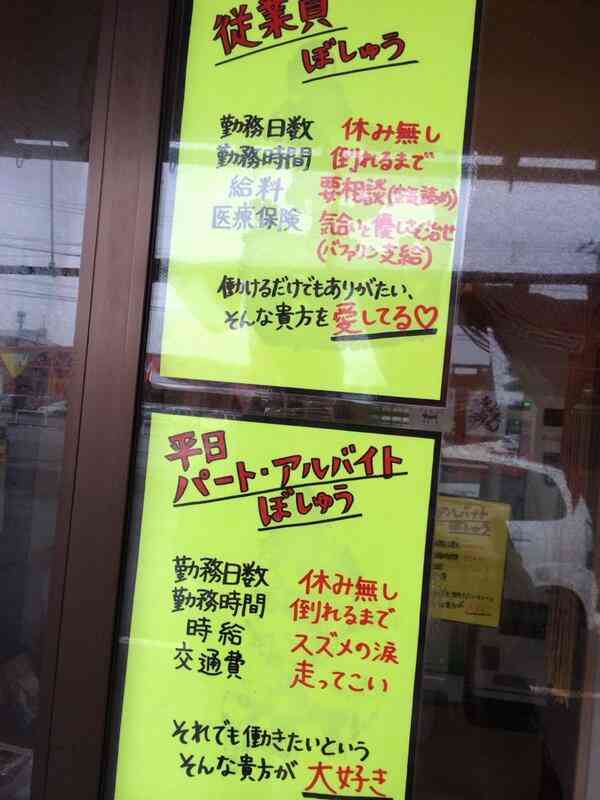 従業員
ぼしゅう
勤務日数 休み無し
勤務時間 倒れるまで
給料 要相談(空気読め)
医療保険 気合いと優しさで治せ
(バファリン支給)
働けるだけでもありがたい、
そんな貴方を 愛してる♡
平日
パート・アルバイト
ぼしゅう
勤務日数 休み無し
勤務時間 倒れるまで
時給 スズメの涙
交通費 走ってこい
それでも働きたいという
そんな貴方が 大好き
アルバイト
ぼしゅう